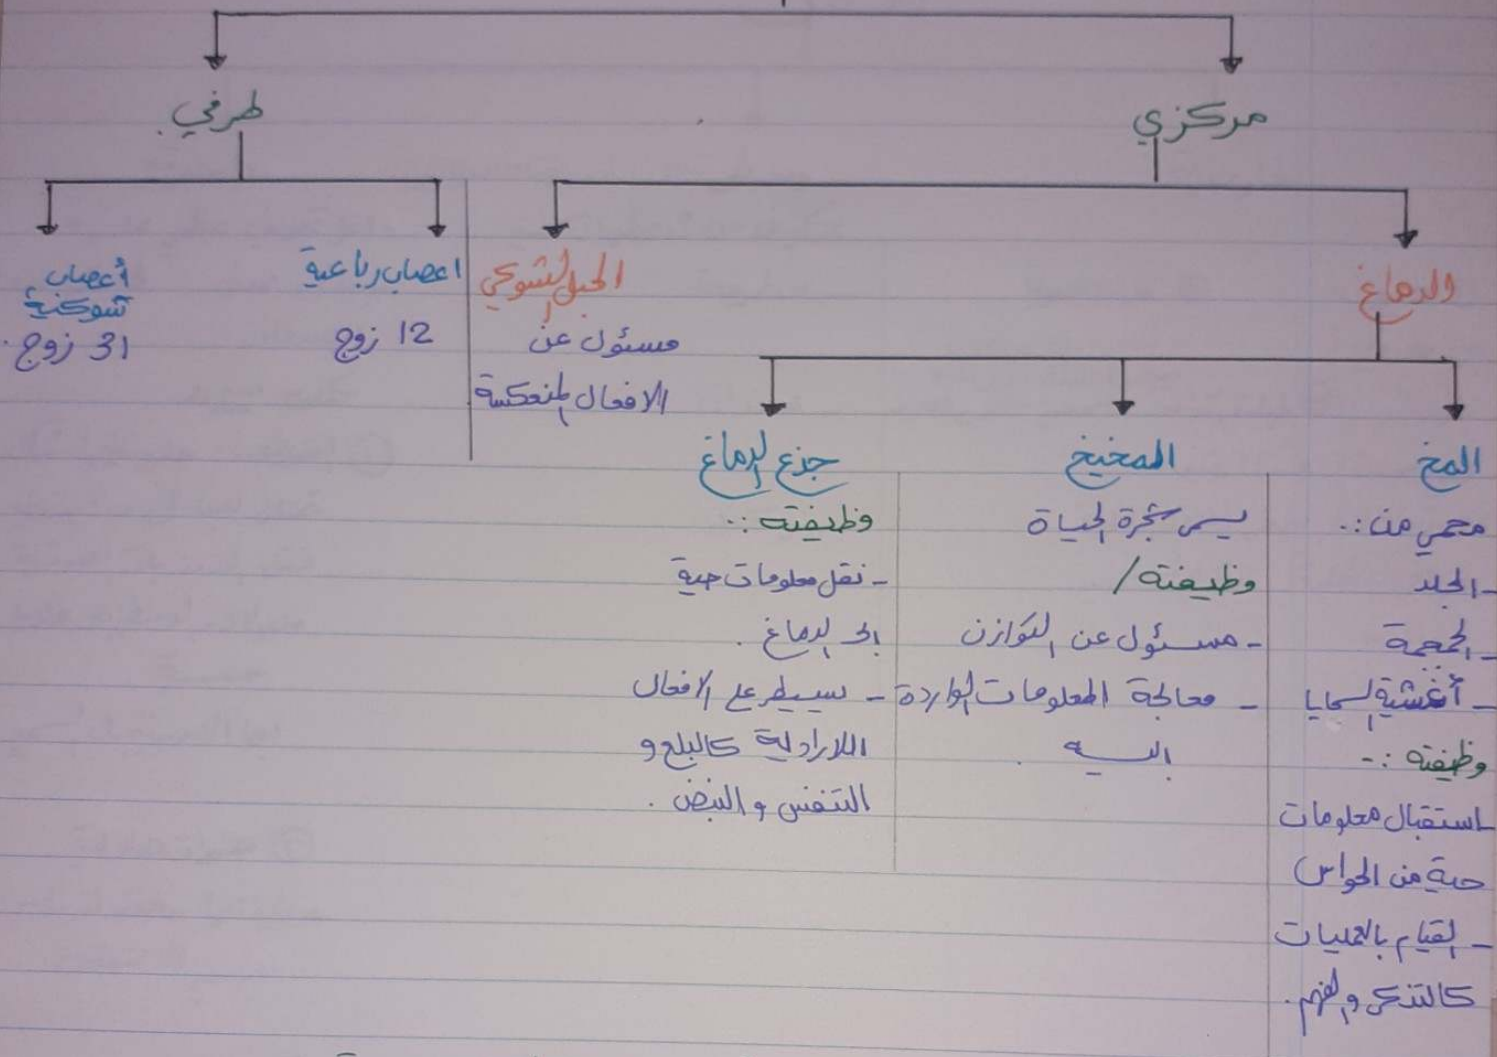 مركزي
طرفي
الدماغ
الحبل الشوكي
مسئول عن
الافعال المنعكسة
اعصاب رباعية
12 زوج
أعصاب
شوكية
31 زوج
المخ
محمي من :.
- الجلد
- الجمجمة
- أغشية السحايا
وظيفته :-
- استقبال معلومات
حسية من الحواس
- القيام بالعمليات
كالتذكر والفهم.
المخيخ
يسمى شجرة الحياة
وظيفته /
- مسئول عن التوازن
- معالجة المعلومات الواردة
اليه .
جذع الدماغ
وظيفته :.
- نقل معلومات حسية
الى الدماغ .
- يسيطر على الافعال
اللارادية كالبلع و
التنفس والنبض .